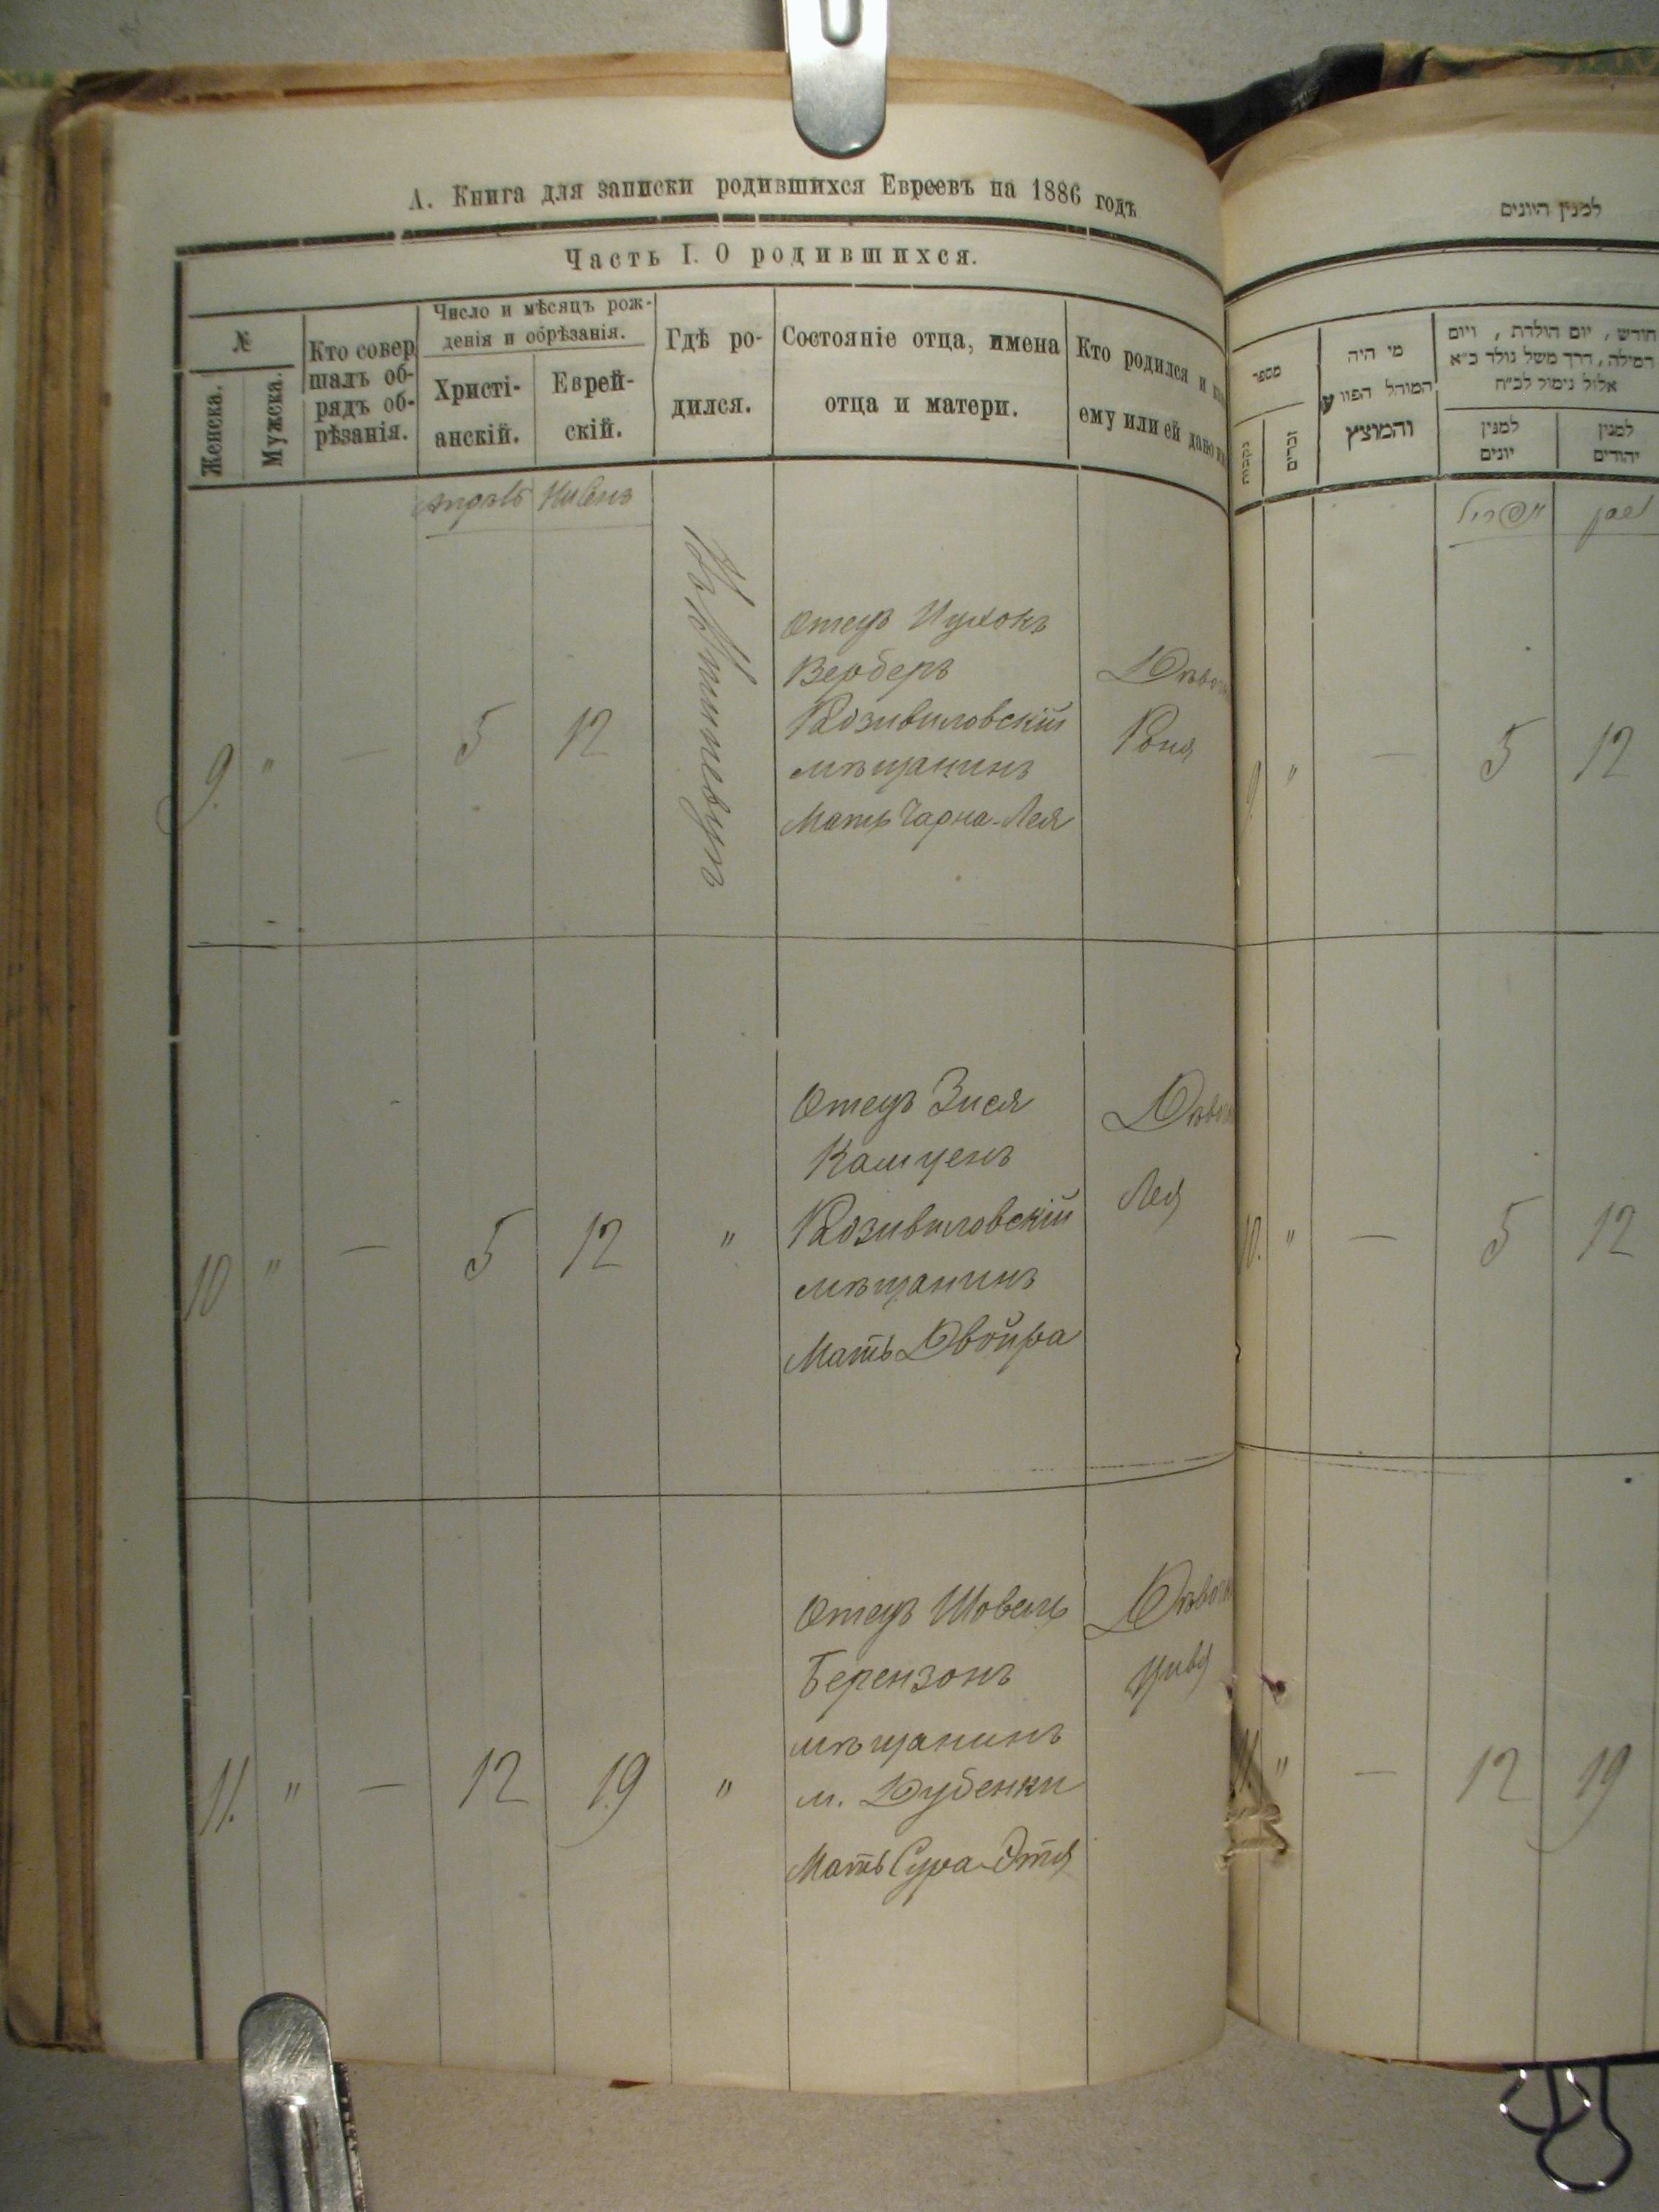 А. Книга для записки родившихся Евреевъ на 1886 годъ
Часть I. О родившихся.
№
Женска.
Мужска.
Кто совер
шалъ об-
рядъ об-
рѣзанія.
Число и мѣсяцъ рож-
денія и обрѣзанія.
Христі-
анскій.
Еврей-
скій.
Гдѣ ро-
дился.
Состояніе отца, имена
отца и матери.
Кто родился и
ему или ей дано
Апрѣль Нисенъ
9. " — 5 12
Отецъ Ицхокъ
Верберъ
мѣщанинъ
Мать Чарна-Лея
Роня
10 " — 5 12 "
Отецъ Зися
Камценъ
мѣщанинъ
Мать Двойра
Лея
11. " — 12 19 "
Отецъ Шовель
Берензонъ
мѣщанинъ
м. Дубенки
Мать Сура-Этя
Цивя
למנין היונים
מספר
נקבות
זכרים
מי היה
המוהל הפורע
והמוצץ
חודש, יום הולדת, ויום
המילה, דרך משל נולד כ״א
אלול נימול לכ״ח
למנין
יונים
למנין
יהודים
אפריל ניסן
" — 5 12
10. " — 5 12
11. " — 12 19